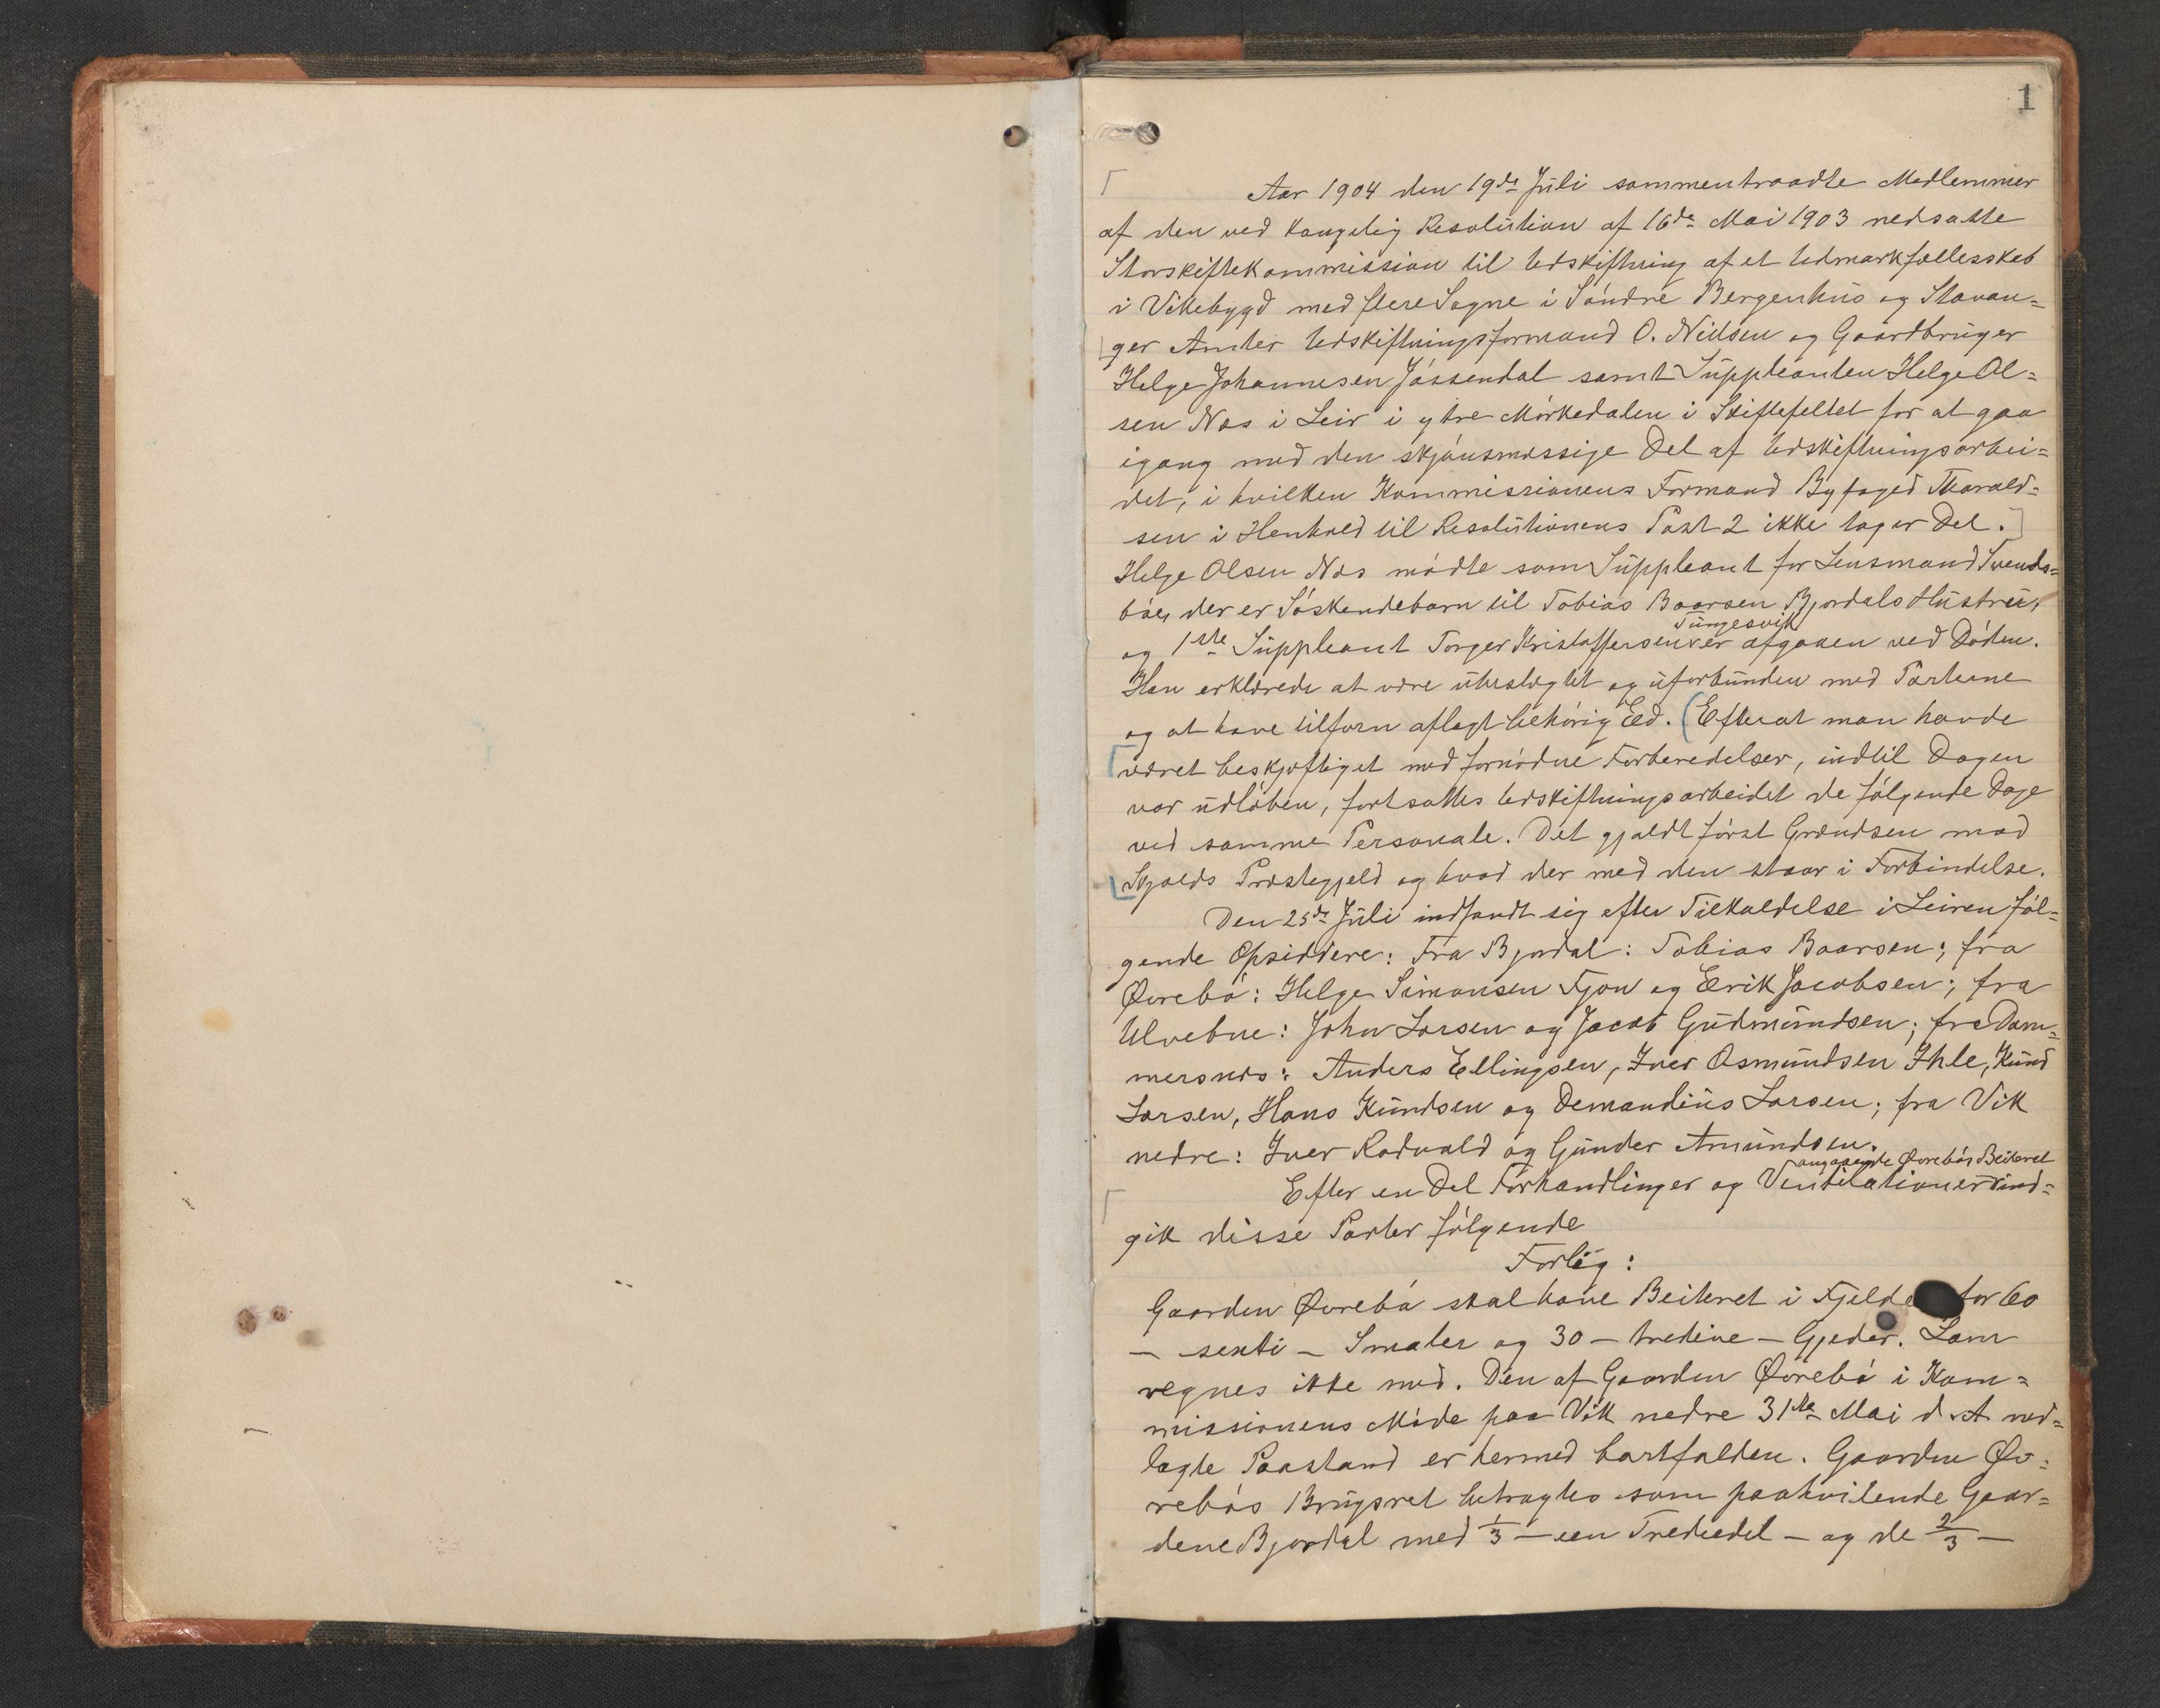 1
Aar 1904 den 19de Juli sammentraadte Medlemmer
af den ved kongelig Resolution af 16de Mai 1903 nedsatte
Storskiftekommission til Udskiftning af et Udmarkfællesskab
i Vikebygd med flere Sogne i Søndre Bergenhus og Stavan=
ger Amter Udskiftningsformand O. Nielsen og Gaardbruger
Helge Johannesen Jøssendal samt Suppleanten Helge Ol=
sen Næs i Leir i ytre Mørkedalen i Skiftefeltet for at gaa
igang med den skjønsmæssige Del af Udskiftningsarbei=
det, i hvilken Kommissionens Formand Byfoged Tharald=
sen i Henhold til Resolutionens Post 2 ikke tager Del.
Helge Olsen Næs mødte som Suppleant for Lensmand Svends=
bøe, der er Søskendebarn til Tobias Baarsen Bjordals Hustru,
Tungesvik
og 1ste Suppleant Torger Kristoffersen er afgaaen ved Døden.
Han erklærede at være ubeslægtet og uforbunden med Parterne
og at have tilforn aflagt behørig Eed. (Efterat man havde
været beskjæftiget med fornødne Forberedelser, indtil Dagen
var udløben, fortsattes Udskiftningsarbeidet de følgende Dage
ved samme Personale. Det gjaldt først Grændsen mod
Skjolds Præstegjeld og hvad der med den staar i Forbindelse.
Den 25de Juli indfandt sig efter Tilkaldelse i Leiren føl=
gende Opsiddere: Fra Bjordal: Tobias Baarsen; fra
Øvrebø: Helge Simonsen Fjon og Erik Jacobsen; fra
Ulvebne: John Larsen og Jacob Gudmundsen; fra Dom=
mersnes: Anders Ellingsen, Iver Osmundsen Ihle, Knud
Larsen, Hans Knudsen og Demandius Larsen; fra Vik
nedre: Iver Rodvald og Gunder Amundsen.
angaaende Øvrebøs Beiteret
Efter en Del Forhandlinger og Ventilationer ind=
gik disse Parter følgende
Forlig:
Gaarden Øvrebø skal have Beiteret i Fjelde for 60
— sexti — Smaler og 30 — tredive — Gjeder. Lam
regnes ikke med. Den af Gaarden Øvrebø i Kom=
missionens Møde paa Vik nedre 31te Mai d. A ned=
lagte Paastand er hermed bortfalden. Gaarden Øv=
rebøs Brugsret betragtes som paahvilende Gaar=
dene Bjordal med 1/3 — een Trediedel — og de 2/3 —